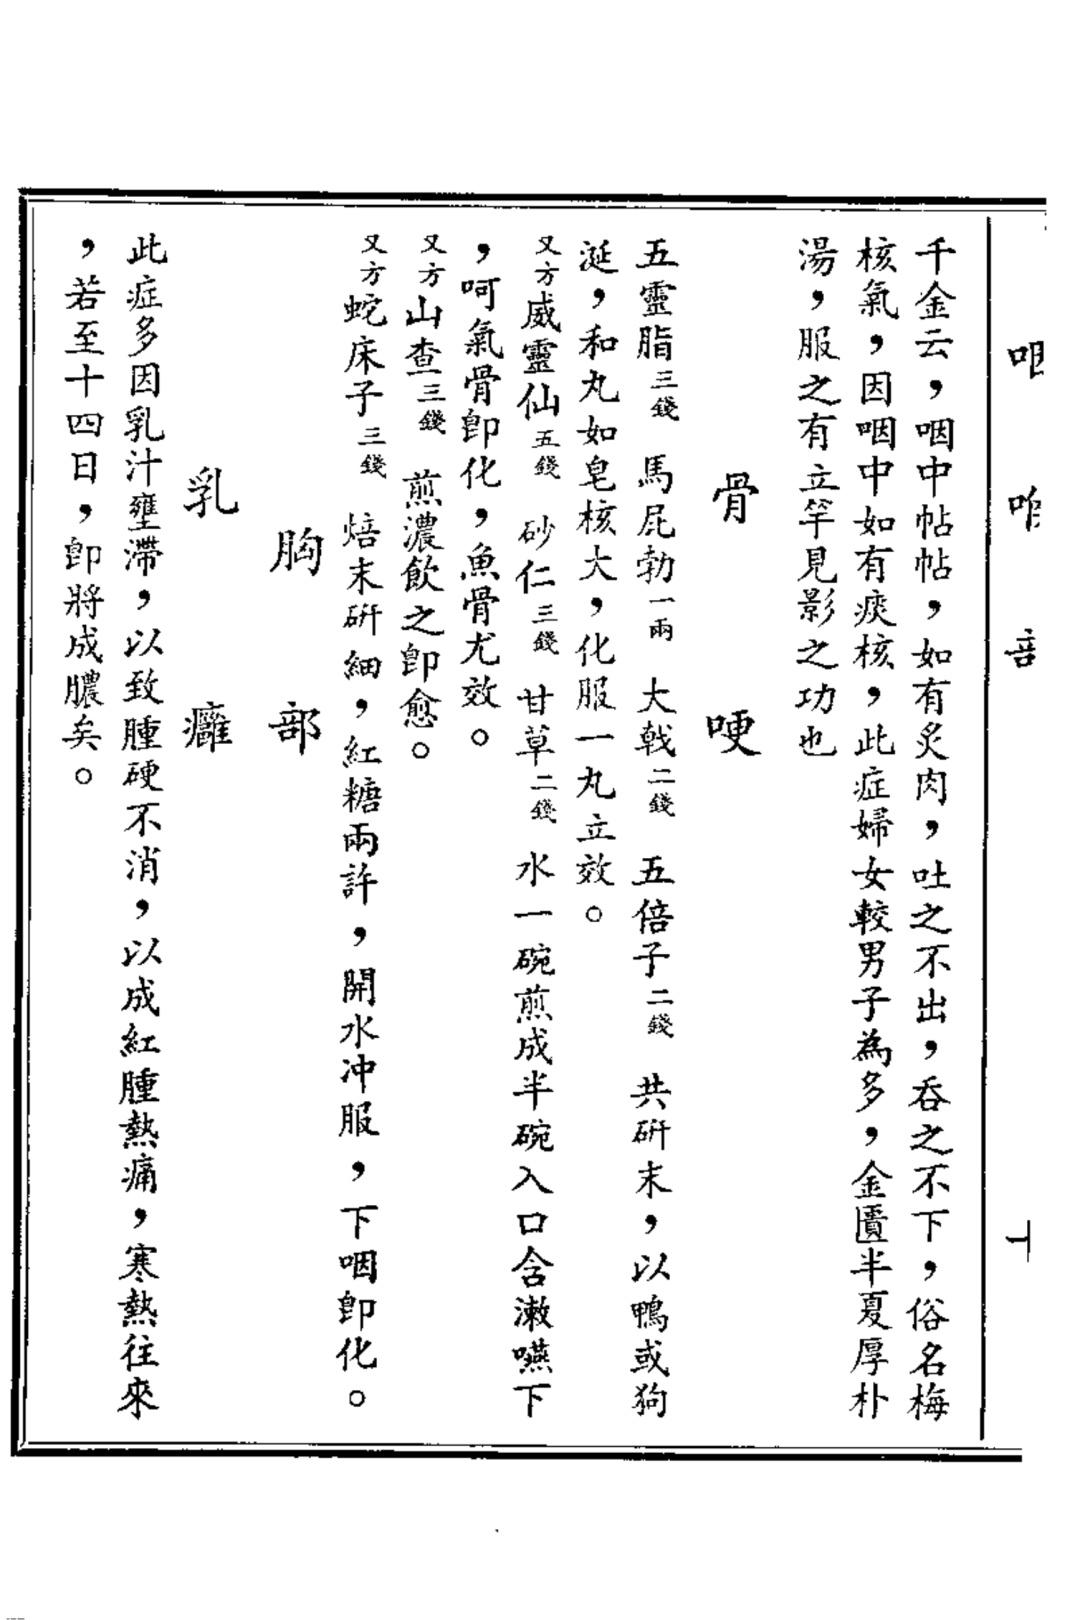 千金云，咽中帖帖，如有炙肉，吐之不出，吞之不下，俗名梅
核氣，因咽中如有痰核，此症婦女較男子為多，金匱半夏厚朴
湯，服之有立竿見影之功也
骨哽
五靈脂三錢 馬屁勃一兩 大戟二錢 五倍子二錢 共研末，以鴨或狗
涎，和丸如皂核大，化服一丸立效。
又方威靈仙五錢 砂仁三錢 甘草二錢 水一碗煎成半碗入口含漱嚥下
，呵氣骨即化，魚骨尤效。
又方山查三錢 煎濃飲之即愈。
又方蛇床子三錢 焙末研細，紅糖兩許，開水冲服，下咽即化。
胸部
乳癰
此症多因乳汁壅滯，以致腫硬不消，以成紅腫熱痛，寒熱往來
，若至十四日，即將成膿矣。